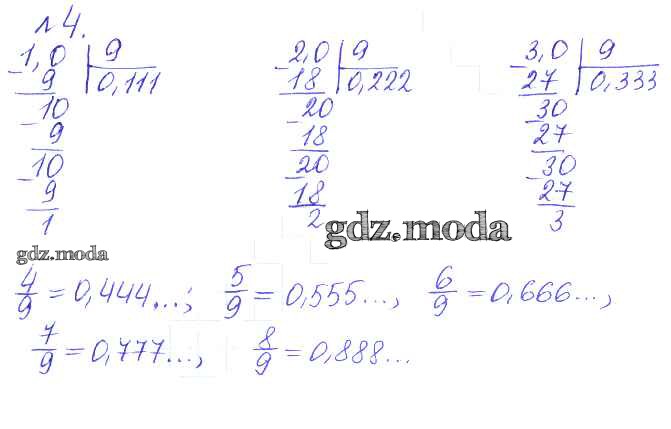 №4.
1,0 | 9 2,0 | 9 3,0 | 9
- 9 | 0,111 - 18 | 0,222 - 27 | 0,333
10 20 30
- 9 - 18 - 27
10 20 30
- 9 - 18 - 27
1 2 3
gdz.moda
gdz.moda
4/9 = 0,444...; 5/9 = 0,555..., 6/9 = 0,666...,
7/9 = 0,777..., 8/9 = 0,888...